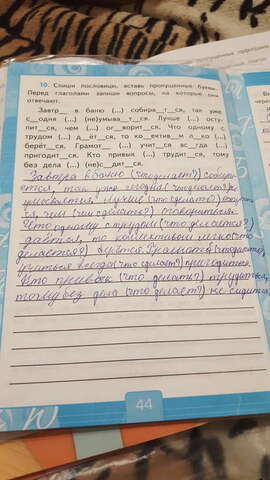 10. Спиши пословицы, вставь пропущенные буквы.
Перед глаголами запиши вопросы, на которые они
отвечают.
Завтр__ в баню (...) собира__т__ся, так уже
с__одня (...) (не)умыва__т__ся. Лучше (...) осту-
пит__ся, чем (...) ог__ворит__ся. Что одному с
трудом (...) д__ёт__ся, то ко__ектив__м л__ко (...)
берёт__ся. Грамот__ (...) учит__ся вс__гда (...)
пригодит__ся. Кто привык (...) трудит__ся, тому
без дела (...) (не)с__дит__ся.
Завтра в баню (что делает?) собира
ется, так уже сегодня (что делает?) не
умывается. Лучше (что сделать?) оступить
ся, чем (что сделать?) оговориться.
Что одному с трудом (что делается?)
даётся, то коллективом легко (что
делается?) берётся. Грамоте (что делать?)
учиться всегда (что сделает?) пригодится.
Кто привык (что делать?) трудиться,
тому без дела (что делает?) не сидится.
44